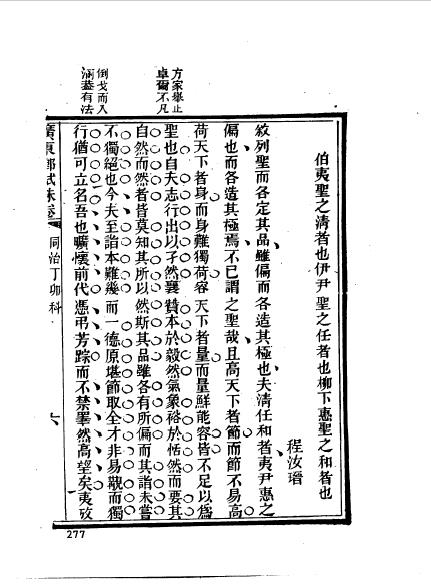 方家舉止
卓爾不凡
倒戈而入
涵蓋有法
伯夷聖之清者也伊尹聖之任者也柳下惠聖之和者也
程汝瑨
敘列聖而各定其品雖偏而各造其極也夫清任和者夷尹惠之
偏也而各造其極焉不已謂之聖哉且高天下者節而節不易高
荷天下者身而身難獨荷容天下者量而量鮮能容皆不足以爲
聖也自夫志行出以孑然襄贊本於毅然氣象裕於恬然而要其
自然而然者皆莫知其所以然斯其品雖各有所偏而其詣未嘗
不獨絕也今夫至詣本難幾而一德原堪節取全才非易觀而獨
行猶可立名吾也曠懷前代憑弔芳踪而不禁睾然高望矣夷攷
廣東鄉試硃卷
同治丁卯科
277